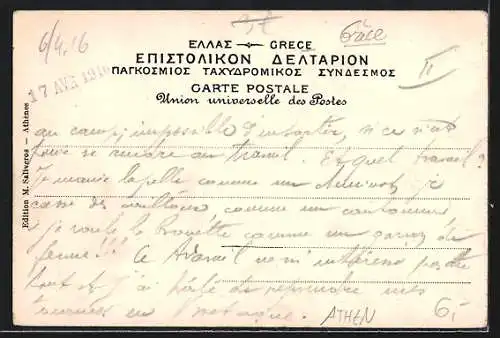 6/4.16
Grèce
17 AVR 1916
II
ΕΛΛΑΣ — GRECE
ΕΠΙΣΤΟΛΙΚΟΝ ΔΕΛΤΑΡΙΟΝ
ΠΑΓΚΟΣΜΙΟΣ ΤΑΧΥΔΡΟΜΙΚΟΣ ΣΥΝΔΕΣΜΟΣ
CARTE POSTALE
Union universelle des Postes
Edition M. Saliveros — Athènes
au camp, impossible d', si ce n'est
pour se rendre au travail. Et quel travail?
Je manie la pelle comme un, je
casse des cailloux comme un
je roule la brouette comme un garçon de
ferme!!! Ce travail ne m'intéresse pas du
tout et j'ai hâte de reprendre mes
tournées en
ATHEN
6,-